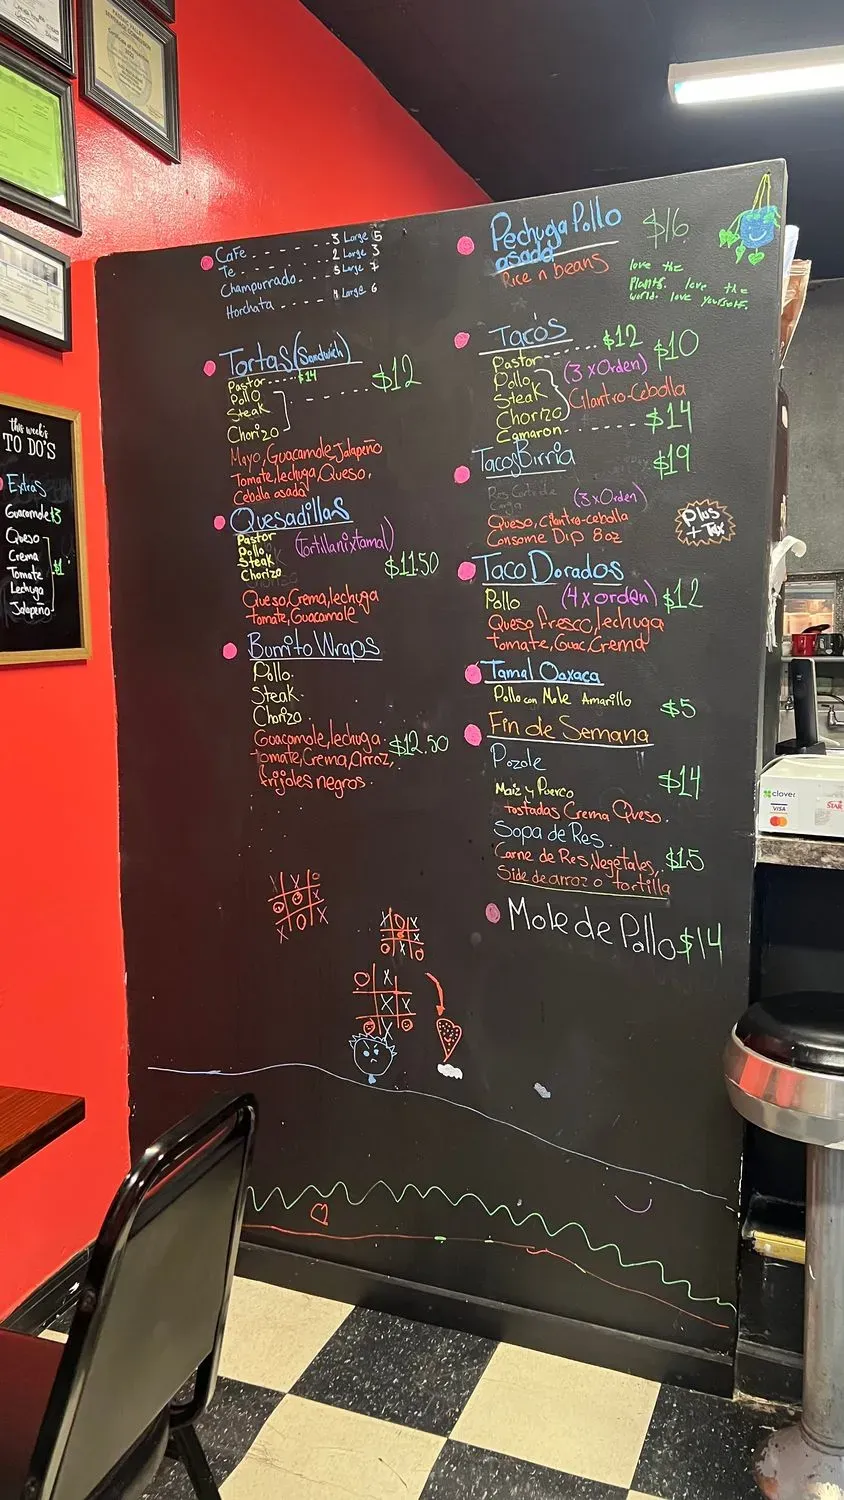 Cafe - - - - - - - 3 Large 5
Te - - - - - - - - 2 Large 3
Champurrado - - - 5 Large 7
Horchata - - - - Large 6
Tortas (Sandwich)
Pastor - - - - $14
Pollo
Steak
Chorizo
$12
Mayo, Guacamole, Jalapeño
Tomate, lechuga, Queso,
Cebolla asada
Quesadillas
Pastor
Pollo
Steak
Chorizo
(tortillanixtamal)
$11.50
Queso, Crema, lechuga
tomate, Guacamole
Burrito Wraps
Pollo.
Steak.
Chorizo
Guacamole, lechuga
tomate, Crema, arroz,
frijoles negros
$12.50
Pechuga Pollo
asada
$16
Rice n beans
love the
Plants. love the
world. love yourself.
Tacos
Pastor - - - - - - $12
$10
Pollo
Steak
Chorizo
(3 x Orden)
Cilantro-Cebolla
Camaron - - - - - - $14
Tacos Birria
$19
(3 x Orden)
Queso, cilantro-cebolla
Consome Dip 8oz
Plus
+ Tax
Taco Dorados
Pollo (4 x orden) $12
Queso fresco, lechuga
tomate, Guac, Crema
Tamal Oaxaca
Pollo con Mole Amarillo
$5
Fin de Semana
Pozole
$14
Maiz y Puerco
tostadas Crema Queso.
Sopa de Res
Carne de Res, Vegetales,
$15
Side de arroz o tortilla
Mole de Pollo $14
this week's
TO DO'S
Extras
Guacamole $3
Queso
Crema
Tomate
Lechuga
Jalapeño
$1
clover
VISA
STAR